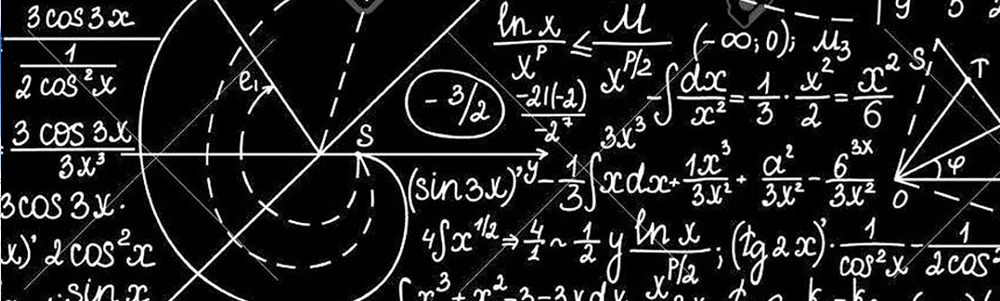 3 cos 3x
1
2 cos²x
3 cos 3x
3x³
3 cos 3x ·
x)' 2 cos²x
sin x
e₁
S
-3/2
ln x / x^p ≤ M / x^(p/2)
(-∞; 0); M₃
-21(-2)
-2⁷
3x³
-∫ dx/x² = 1/3 · x²/2 = x²/6
(sin3x)'^y - 1/3 ∫ x dx + 1x³/3x² + a²/3x² - 6^(3x)/3x²
4∫x^(1/2) ⇒ 4/1 ~ 1/2 y ln x / x^(p/2); (tg 2x)' · 1/cos²x - 1/2cos²
x³ + x² - 3 - 3x dx
S₁
T
O
φ